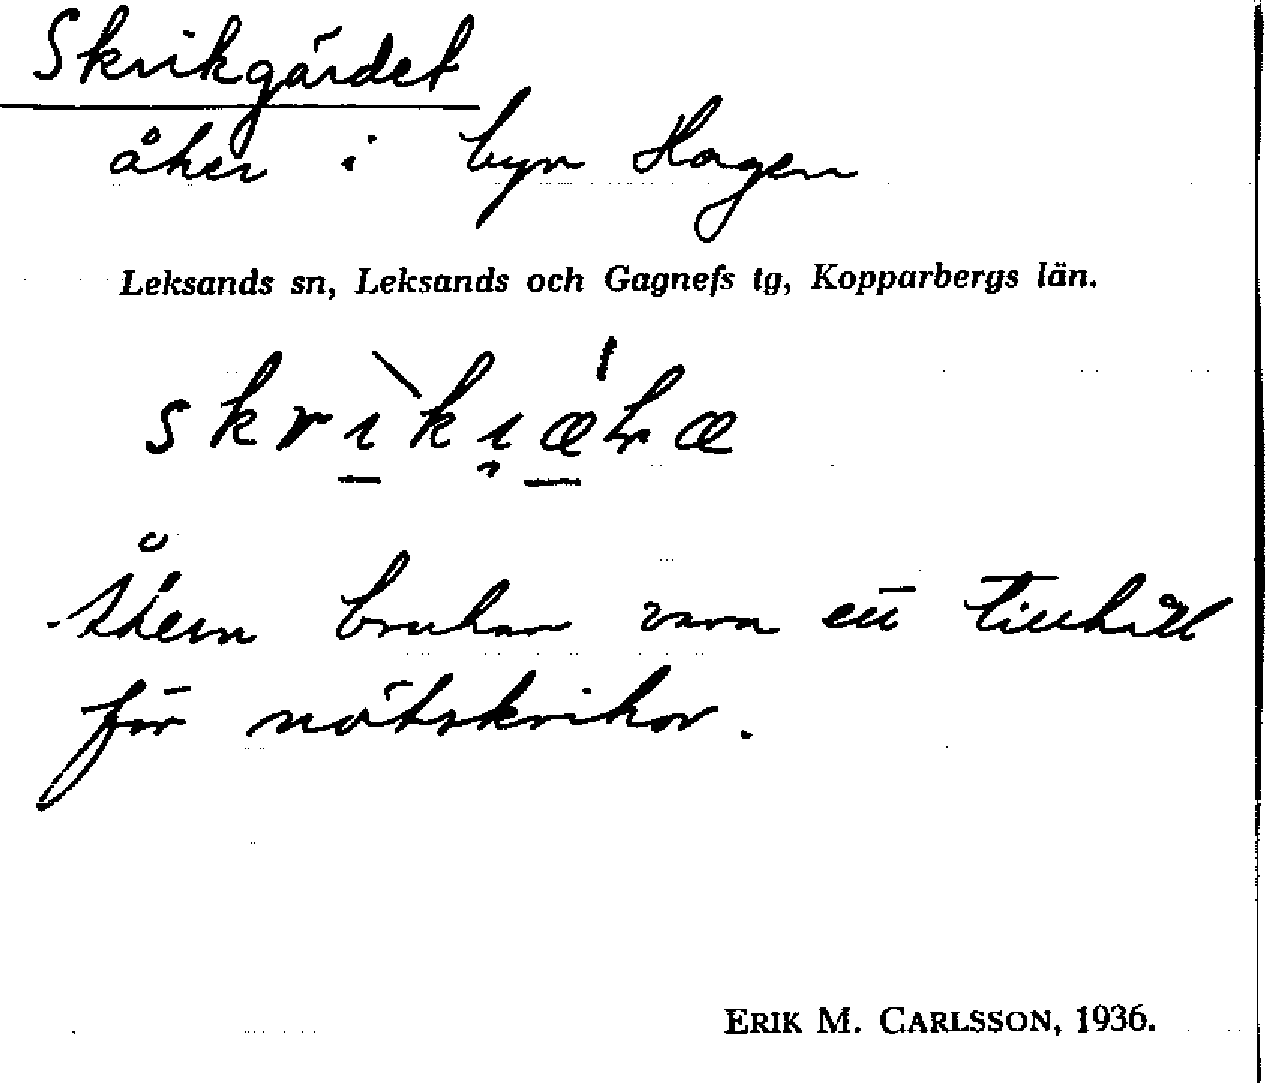 Skrikgärdet
åker i byn Hagen
Leksands sn, Leksands och Gagnefs tg, Kopparbergs län.
Åkern brukar vara ett tillhåll
för nötskrikor.
ERIK M. CARLSSON, 1936.